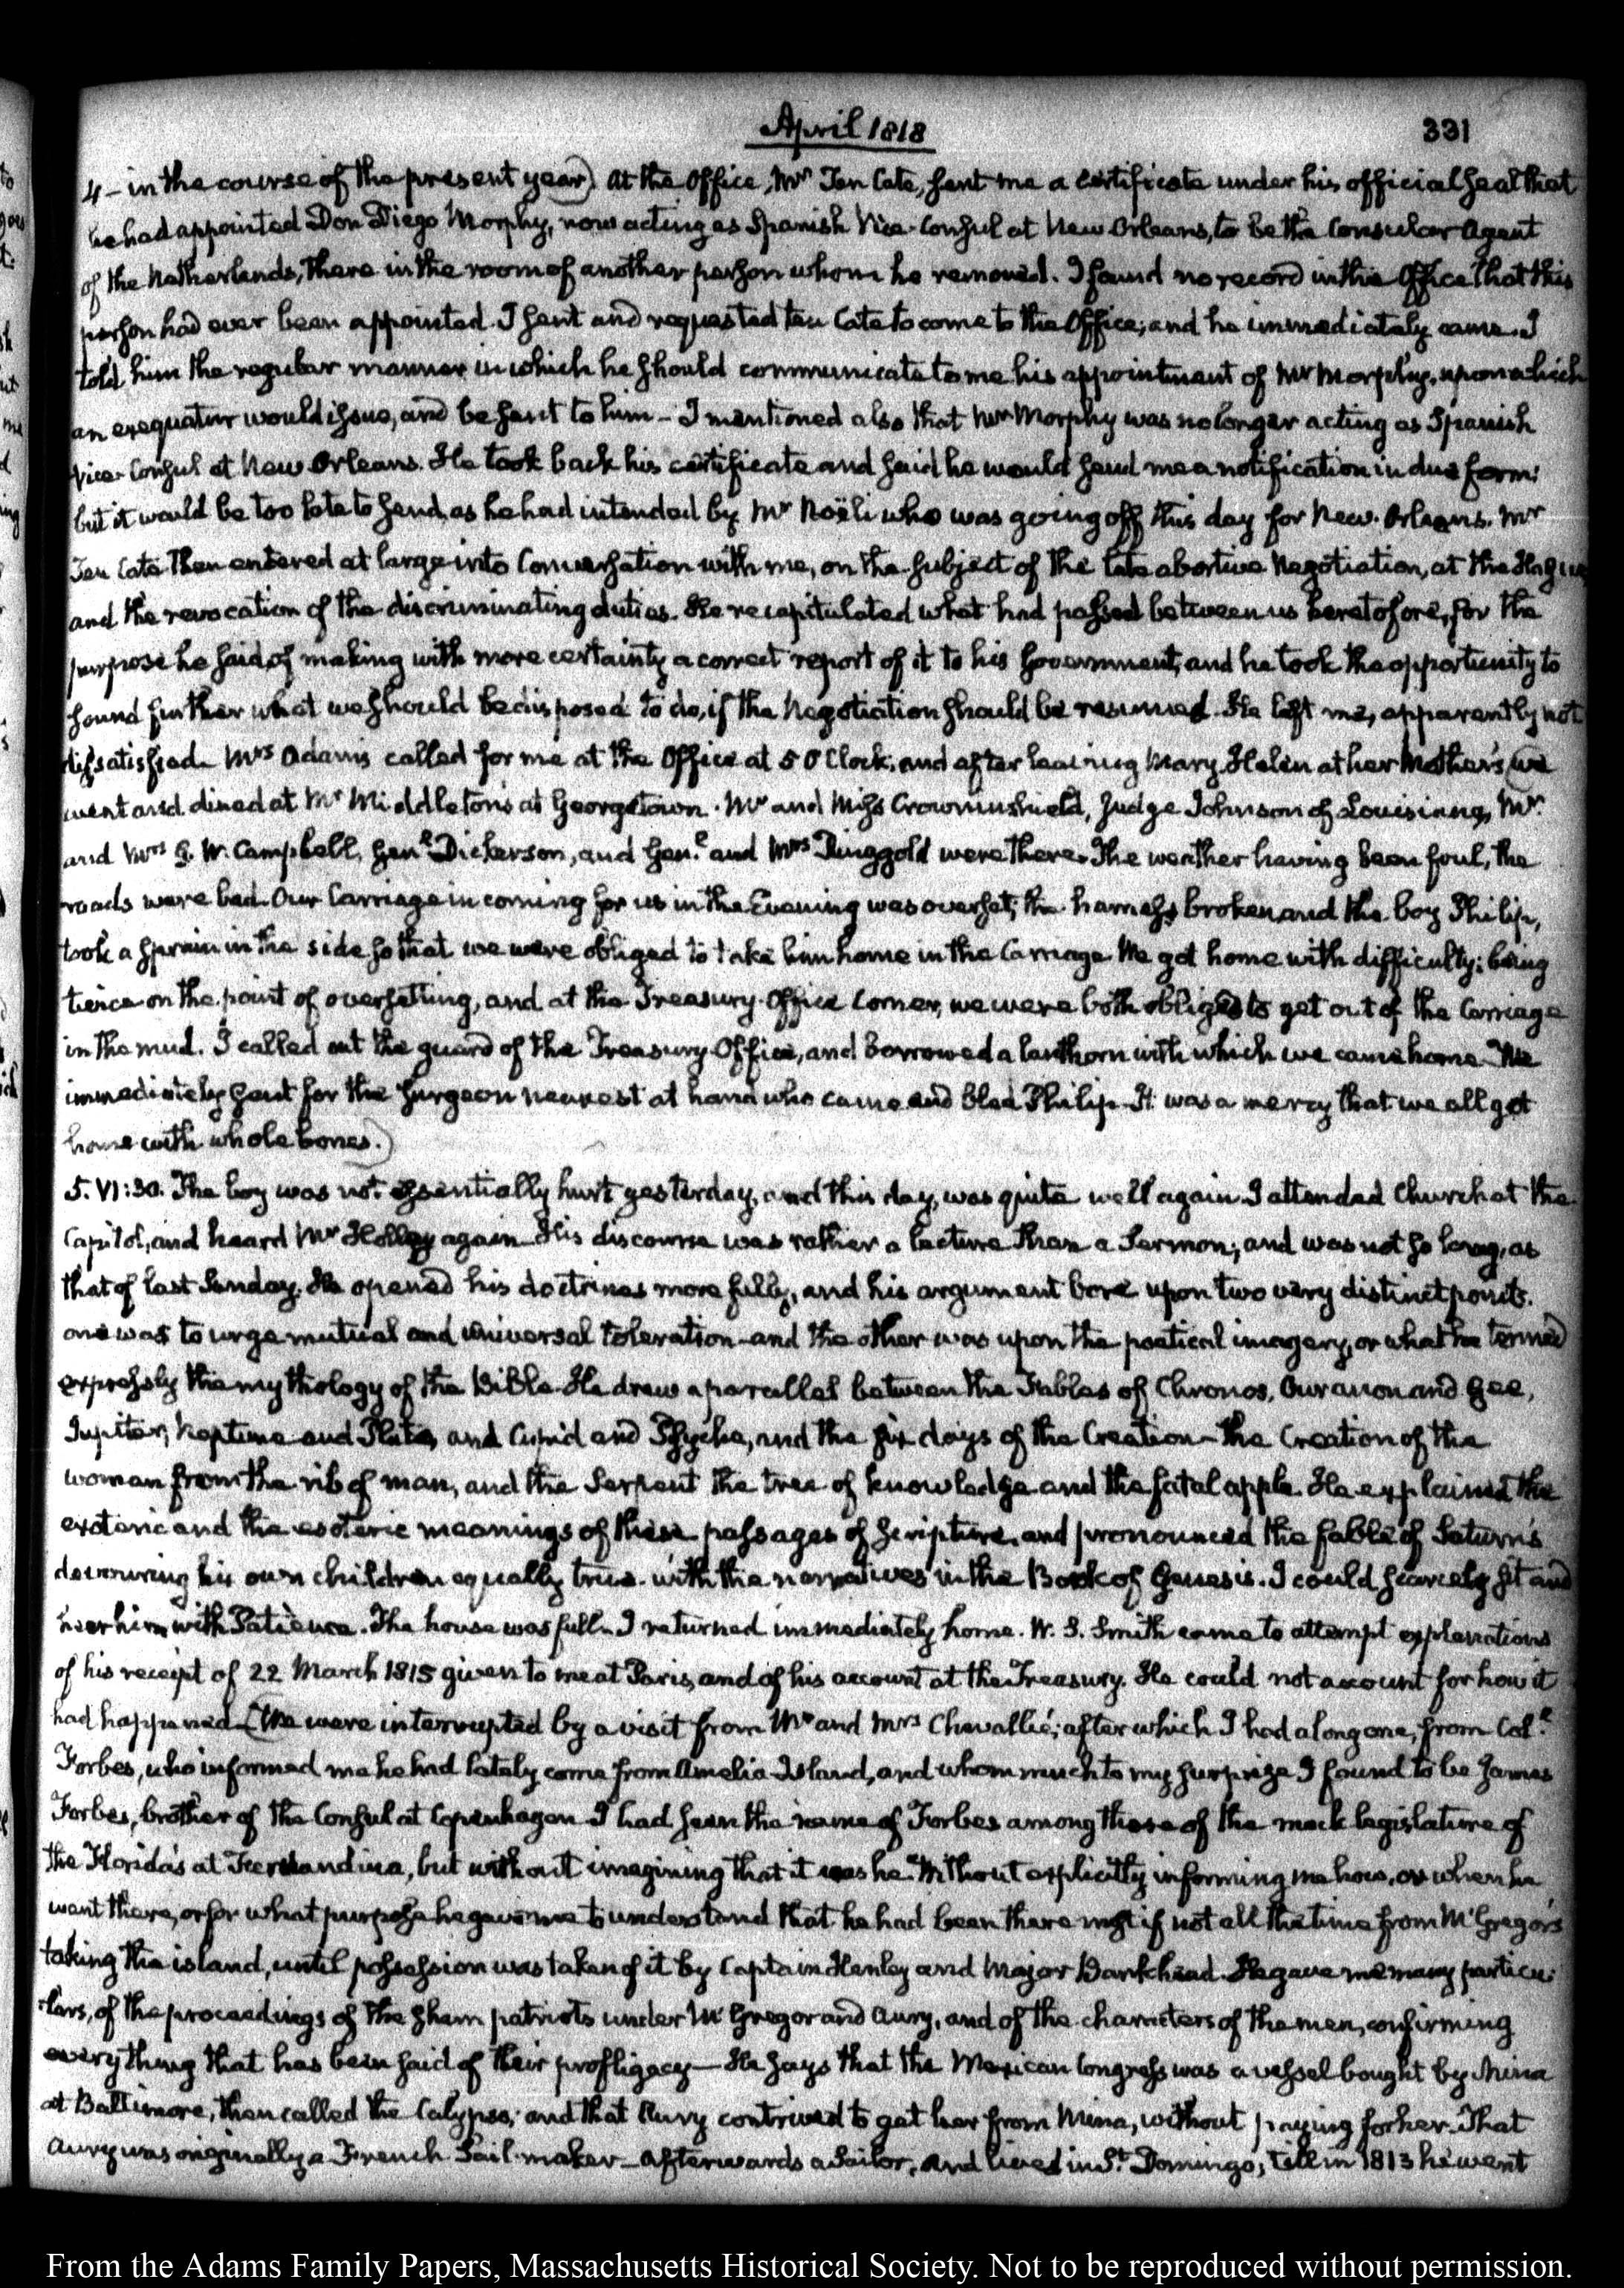 April 1818
331
4 - in the course of the present year) At the Office, Mr Ten Cate, sent me a certificate under his official seal that
he had appointed Don Diego Morphy, now acting as Spanish Vice-Consul at New Orleans, to be the Consular Agent
of the Netherlands, there in the room of another person whom he removed. I found no record in the Office that this
person had ever been appointed. I sent and requested ten Cate to come to the Office; and he immediately came. I
told him the regular manner in which he should communicate to me his appointment of Mr Morphy, upon which
an exequatur would issue, and be sent to him - I mentioned also that Mr Morphy was no longer acting as Spanish
Vice-Consul at New Orleans. He took back his certificate and said he would send me a notification in due form:
but it would be too late to send, as he had intended by Mr Noëli who was going off this day for New-Orleans. Mr
Ten Cate then entered at large into Conversation with me, on the subject of the late abortive Negotiation, at the Hague
and the revocation of the discriminating duties. He recapitulated what had passed between us heretofore, for the
purpose he said, of making with more certainty a correct report of it to his Government, and he took the opportunity to
sound further what we should be disposed to do, if the Negotiation should be resumed. He left me, apparently not
dissatisfied. Mrs Adams called for me at the Office at 5 O'Clock, and after leaving Mary Helen at her Mother's (we
went and dined at Mr Middleton's at Georgetown. Mr and Miss Crowninshield, Judge Johnson of Louisiana, Mr
and Mrs G. W. Campbell, Genl Dickerson, and Genl and Mrs Ringgold were there. The weather having been foul, the
roads were bad. Our Carriage in coming for us in the Evening was overset; the harness broken and the boy Philip,
took a sprain in the side so that we were obliged to take him home in the Carriage. We got home with difficulty; being
twice on the point of oversetting, and at the Treasury-Office Corner, we were both obliged to get out of the Carriage
in the mud. I called out the guard of the Treasury-Office, and borrowed a lanthorn with which we came home - We
immediately sent for the Surgeon nearest at hand who came and bled Philip - It was a mercy that we all got
home with whole bones.)
5. VI:30. The boy was not essentially hurt yesterday, and this day, was quite well again. I attended Church at the
Capitol, and heard Mr Holley again - His discourse was rather a lecture than a Sermon; and was not so long, as
that of last Sunday. He opened his doctrines more fully, and his argument bore upon two very distinct points.
one was to urge mutual and universal toleration - and the other was upon the poetical imagery, or what he termed
expressly the mythology of the Bible. He drew a parallel between the Fables of Chronos, Ouranon and Gee,
Jupiter, Neptune and Pluto, and Cupid and Psyche, and the six days of the Creation - the Creation of the
woman from the rib of man, and the Serpent the tree of knowledge and the fatal apple. He explained the
exoteric and the esoteric meanings of these passages of Scripture, and pronounced the fable of Saturn's
devouring his own children equally true with the narratives in the Book of Genesis. I could scarcely sit and
hear him with Patience. The house was full. I returned immediately home. W. S. Smith came to attempt explanations
of his receipt of 22 March 1815 given to me at Paris, and of his account at the Treasury. He could not account for how it
had happened - (We were interrupted by a visit from Mr and Mrs Chevallié; after which I had a long one, from Coll
Forbes, who informed me he had lately come from Amelia-Island, and whom much to my surprize I found to be James
Forbes, brother of the Consul at Copenhagen. I had seen the name of Forbes among those of the mock legislature of
the Florida's at Fernandina, but without imagining that it was he. Without explicitly informing me how, or when he
went there, or for what purpose he gave me to understand that he had been there most if not all the time from McGregor's
taking the island, until possession was taken of it by Captain Henley and Major Bankhead. He gave me many particu-
-lars, of the proceedings of the sham patriots under McGregor and Aury, and of the characters of the men, confirming
every thing that has been said of their profligacy - He says that the Mexican Congress was a vessel bought by Mina
at Baltimore, then called the Calypso; and that Aury contrived to get her from Mina, without paying for her. That
Aury was originally a French Sail-maker - afterwards a Sailor, and lived in St Domingo, till in 1813 he went
From the Adams Family Papers, Massachusetts Historical Society. Not to be reproduced without permission.